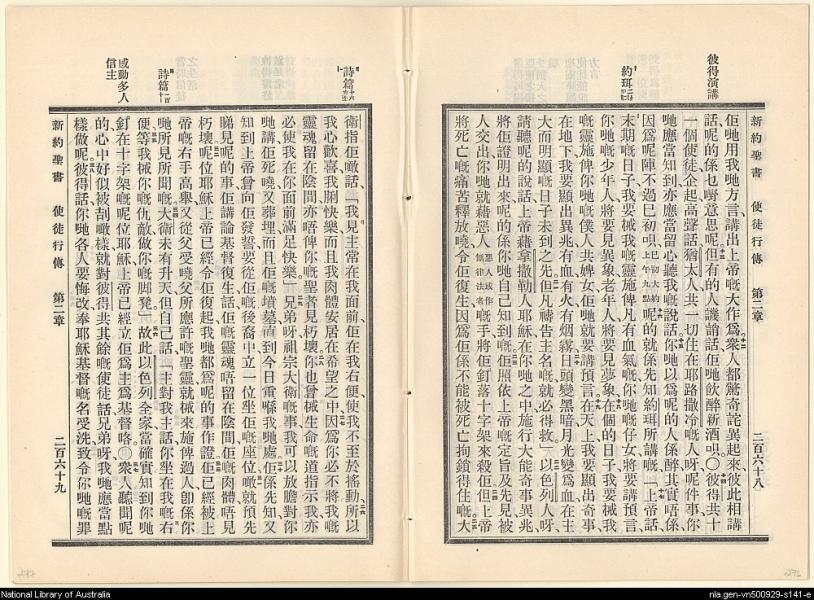 彼得演講
新約聖書 使徒行傳 第二章 二百六十八
佢哋用我哋方言講出上帝嘅大作爲衆人都驚奇詫異起來彼此相講
話呢的係乜嘢意思呢但有的人譏誚話佢哋飲醉新酒唄〇彼得共十
一個使徒企起高聲話猶太人共一切住在耶路撒冷嘅人呀呢件事你
哋應當知到亦應當留心聽我嘅說話你哋以爲呢的人係醉其實唔係
因爲呢陣不過巳初唄巳初大約上午九點呢的就係先知約珥所講嘅上帝話
末期嘅日子我要將我嘅靈施俾凡有血氣嘅你哋嘅仔女將要講預言
你哋嘅少年人將要見異象老年人將要見夢象在個的日子我要將我
嘅靈施俾你哋嘅僕人共婢女佢哋就要講預言在天上我要顯出奇事
在地下我要顯出異兆有血有火有烟霧日頭變黑暗月光變爲血在主
大而明顯嘅日子未到之先但凡禱告主名嘅就必得救以色列人呀
請聽呢的說話上帝藉拿撒勒人耶穌在你哋之中施行大能奇事異兆
將佢證明出來呢的係你哋自己知到嘅佢照依上帝嘅定旨及先見被
人交出你哋就藉惡人惡或作無律法者嘅手將佢釘落十字架來殺佢但上帝
將死亡嘅痛苦釋放曉令佢復生因爲佢係不能被死亡拘鎖得住嘅大
詩篇十六
衛指佢噉話我見主常在我面前佢在我右便使我不至於搖動所以
我心歡喜我脷快樂而且我肉體安居在希望之中因爲你必不將我嘅
靈魂留在陰間亦唔俾你嘅聖者見朽壞你也曾將生命嘅道指示我亦
必使我在你面前滿足快樂兄弟呀祖宗大衛嘅事我可以放膽對你
哋講佢死曉又葬埋而且佢嘅墳墓直到今日重喺我哋處佢係先知又
知到上帝曾向佢發誓要從佢嘅後裔中立一位坐佢嘅座位噉就預先
睇見呢的事佢講論基督復生話佢嘅靈魂唔留在陰間佢嘅肉體唔見
朽壞呢位耶穌上帝已經令佢復起我哋都爲呢的事作證佢已經被上
帝嘅右手高舉又從父受曉父所應許嘅聖靈就將來施俾過人卽係你
哋所見所聞嘅大衛未有升天但自己話主對我主話你坐在我嘅右
便等我將你嘅仇敵做你嘅脚凳故此以色列全家當確實知到你哋
釘在十字架嘅呢位耶穌上帝已經立佢爲主爲基督咯〇衆人聽聞呢
的心中好似被刮噉樣就對彼得共其餘嘅使徒話兄弟呀我哋應當點
樣做呢彼得話你哋各人要悔改奉耶穌基督嘅名受洗致令你哋嘅罪
感動多人信主
新約聖書 使徒行傳 第二章 二百六十九
National Library of Australia
nla.gen-vn500929-s141-e